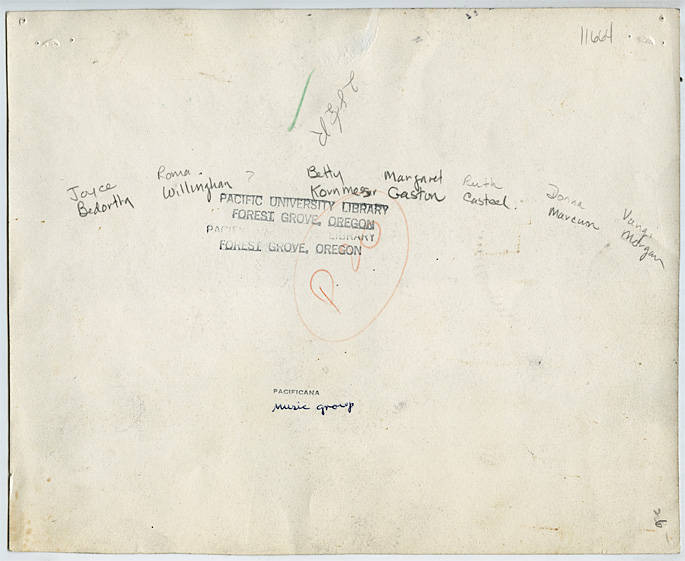 11664
Joyce
Bedortha
Roma
Willingham
?
Betty
Kornmesser
Margaret
Gaston
Ruth
Casteel
Donna
Marcum
Morgan
PACIFIC UNIVERSITY LIBRARY
FOREST GROVE, OREGON
PACIFIC LIBRARY
FOREST GROVE, OREGON
PACIFICANA
Music group